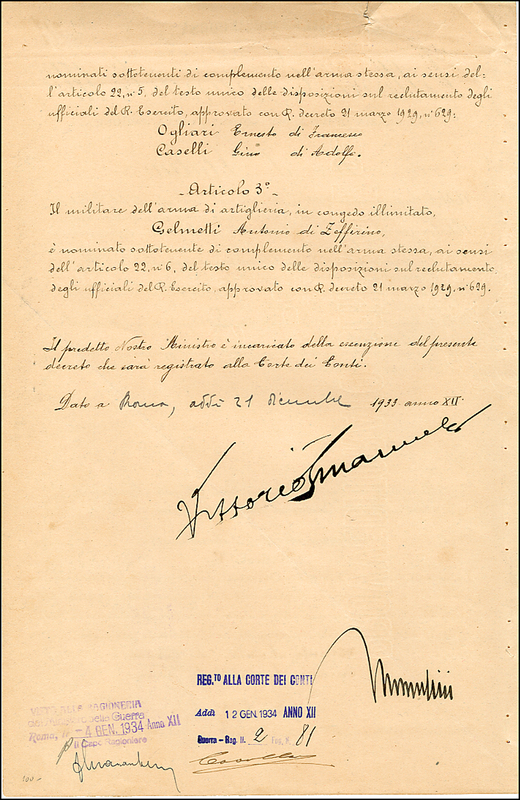 nominati sottotenenti di complemento nell'arma stessa, ai sensi del=
l'articolo 22, n° 5, del testo unico delle disposizioni sul reclutamento degli
ufficiali del R. Esercito, approvato con R. decreto 21 marzo 1929, n° 629:
Ogliari Ernesto di Francesco
Caselli Gino di Adolfo.
- Articolo 3° -
Il militare dell'arma di artiglieria, in congedo illimitato,
Gelmetti Antonio di Zeffirino,
è nominato sottotenente di complemento nell'arma stessa, ai sensi
dell'articolo 22, n° 6, del testo unico delle disposizioni sul reclutamento
degli ufficiali del R. Esercito, approvato con R. decreto 21 marzo 1929, n° 629.
Il predetto Nostro Ministro è incaricato della esecuzione del presente
decreto che sarà registrato alla Corte dei Conti.
Dato a Roma, addì 21 dicembre 1933 anno XII.
Vittorio Emanuele
Mussolini
REG.TO ALLA CORTE DEI CONTI
Addì 12 GEN. 1934 ANNO XII
Guerra - Reg. N. 2 Fog. N. 81
RAGIONERIA
della Guerra
Roma, li - 4 GEN. 1934 Anno XII
Il Capo Ragioniere
100-